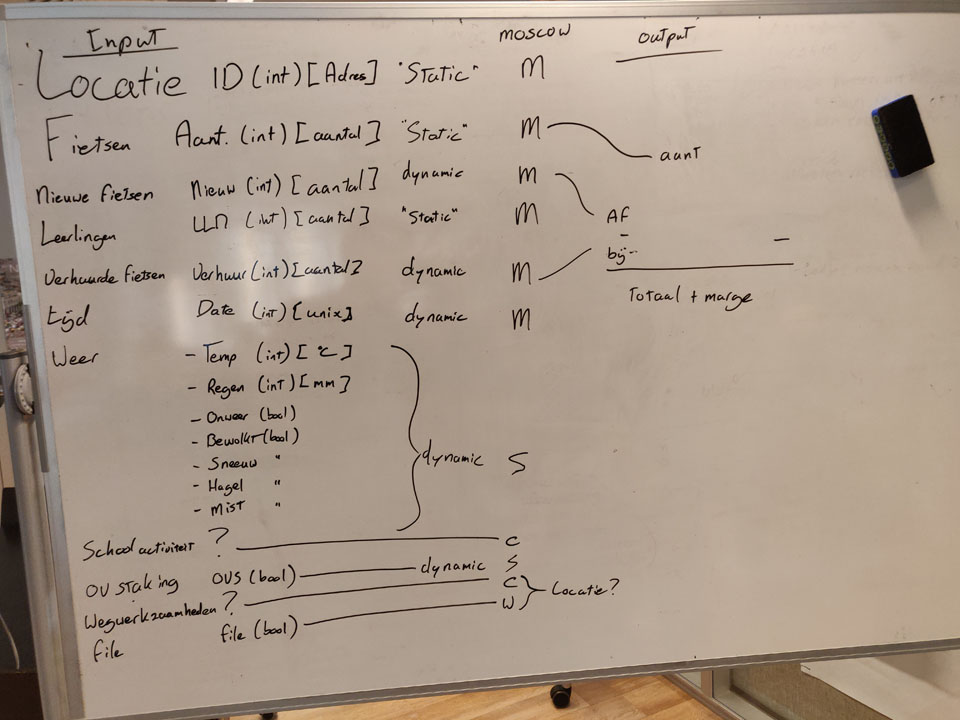 Input MOSCOW output
Locatie ID (int) [Adres] "Static" M
Fietsen Aant. (int) [aantal] "Static" M
aant
Nieuwe fietsen Nieuw (int) [aantal] dynamic M
Leerlingen LLN (int) [aantal] "Static" M AF
-
Verhuurde fietsen Verhuur (int) [aantal] dynamic M bij -
Totaal + marge
tijd Date (int) [unix] dynamic M
Weer - Temp (int) [°C]
- Regen (int) [mm]
- Onweer (bool)
- Bewolkt (bool)
- Sneeuw " dynamic S
- Hagel "
- Mist "
School activiteit ? C
OV staking OVS (bool) dynamic S
Wegwerkzaamheden ? C Locatie?
file file (bool) W